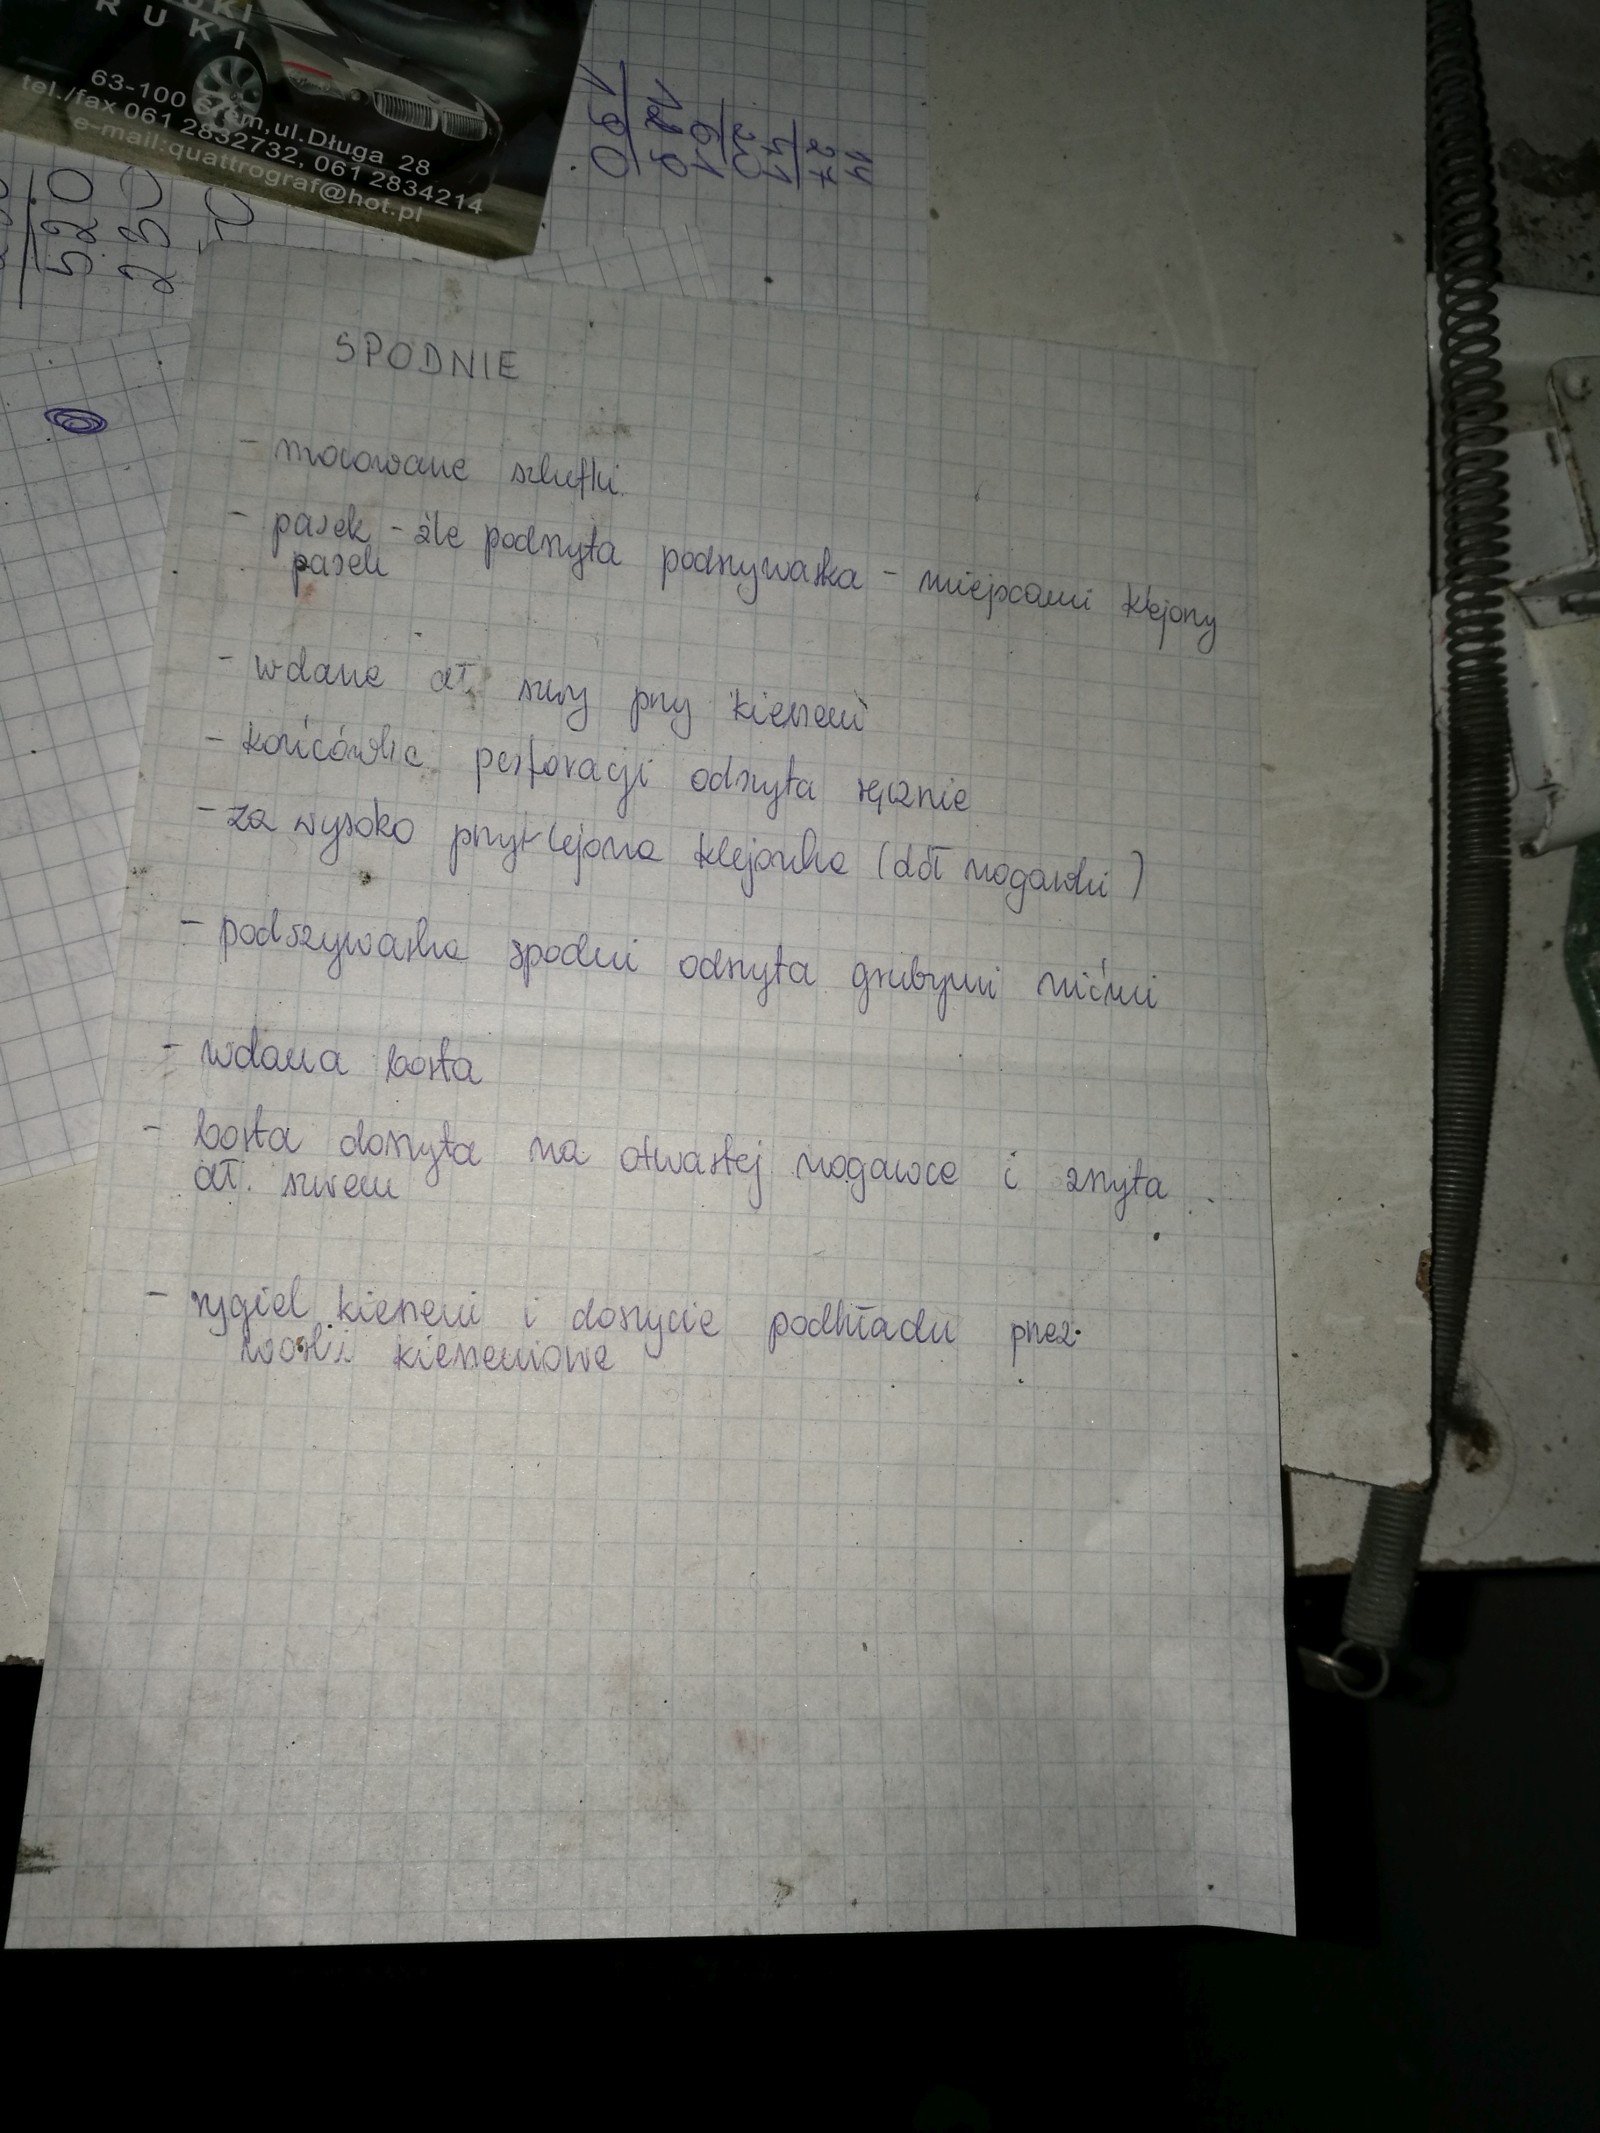 UKI
RUKI
63-100 Śrem, ul. Długa 28
tel./fax 061 2832732, 061 2834214
e-mail:quattrograf@hot.pl
520
230
14
27
41
20
61
129
190
SPODNIE
- mocowane szlufki
- pasek - źle podszyta podszywarka - miejscami klejony
pasek
- wdane dł. szwy przy kieszeni
- końcówka perforacji odszyta ręcznie
- za wysoko przyklejona klejonka (dół nogawki)
- podszywarka spodni odszyta grubymi nićmi
- wdana borta
- borta doszyta na otwartej nogawce i zszyta
dł. szwem
- rygiel kieszeni i doszycie podkładu przez
worki kieszeniowe